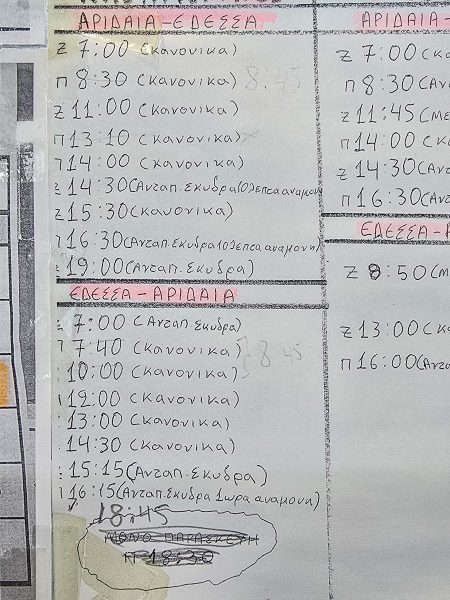 ΑΡΙΔΑΙΑ-ΕΔΕΣΣΑ
Ζ 7:00 (κανονικα)
Π 8:30 (κανονικα) 8:45
Ζ 11:00 (κανονικα)
Π 13:10 (κανονικα)
Π 14:00 (κανονικα)
Ζ 14:30 (Ανταπ. Σκυδρα 10λεπτα αναμον
Ζ 15:30 (κανονικα)
Π 16:30 (Ανταπ. Σκυδρα 10λεπτα αναμονη)
Ζ 19:00 (Ανταπ. Σκυδρα)
ΕΔΕΣΣΑ-ΑΡΙΔΑΙΑ
7:00 (Ανταπ. Σκυδρα)
7:40 (κανονικα) 8:45
10:00 (κανονικα)
12:00 (κανονικα)
13:00 (κανονικα)
14:30 (κανονικα)
15:15 (Ανταπ. Σκυδρα)
16:15 (Ανταπ. Σκυδρα 1ωρα αναμονη)
18:45
ΜΟΝΟ ΠΑΡΑΣΚΕΥΗ
Π 18:30
ΑΡΙΔΑΙΑ-
Ζ 7:00 (κα
Π 8:30 (Αν
Ζ 11:45 (ΜΕ
Π 14:00 (κα
Ζ 14:30 (Αντ
Π 16:30 (Αντα
ΕΔΕΣΣΑ-Α
Ζ 8:50 (Μ
Ζ 13:00 (κα
Π 16:00 (Αντα